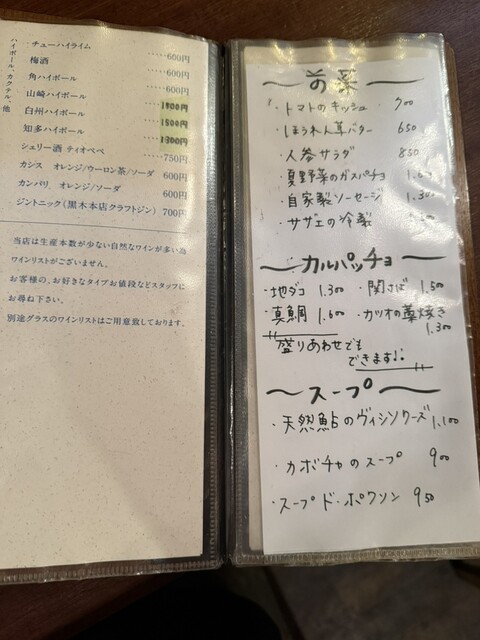 ハイボール、カクテル、他
・チューハイライム ……600円
梅酒 ……600円
角ハイボール ……600円
山崎ハイボール ……1800円
白州ハイボール ……1500円
知多ハイボール ……1300円
シェリー酒 ティオペペ ……750円
カシス オレンジ/ウーロン茶/ソーダ 600円
カンパリ オレンジ/ソーダ 600円
ジントニック(黒木本店クラフトジン) 700円
当店は生産本数が少ない自然なワインが多い為
ワインリストがございません。
お客様の、お好きなタイプお値段などスタッフに
お尋ね下さい。
別途グラスのワインリストはご用意致しております。
〜前菜〜
・トマトのキッシュ 700
・ほうれん草バター 650
・人参サラダ 850
・夏野菜のガスパチョ
・自家製ソーセージ 1.300
・サザエの冷製
〜カルパッチョ〜
・地ダコ 1.300 ・関さば 1.500
・真鯛 1.600 ・カツオの藁焼き
1.300
盛りあわせでも
できます!!
〜スープ〜
・天然鮎のヴィシソワーズ 1.100
・カボチャのスープ 900
・スープ ド・ポワソン 950